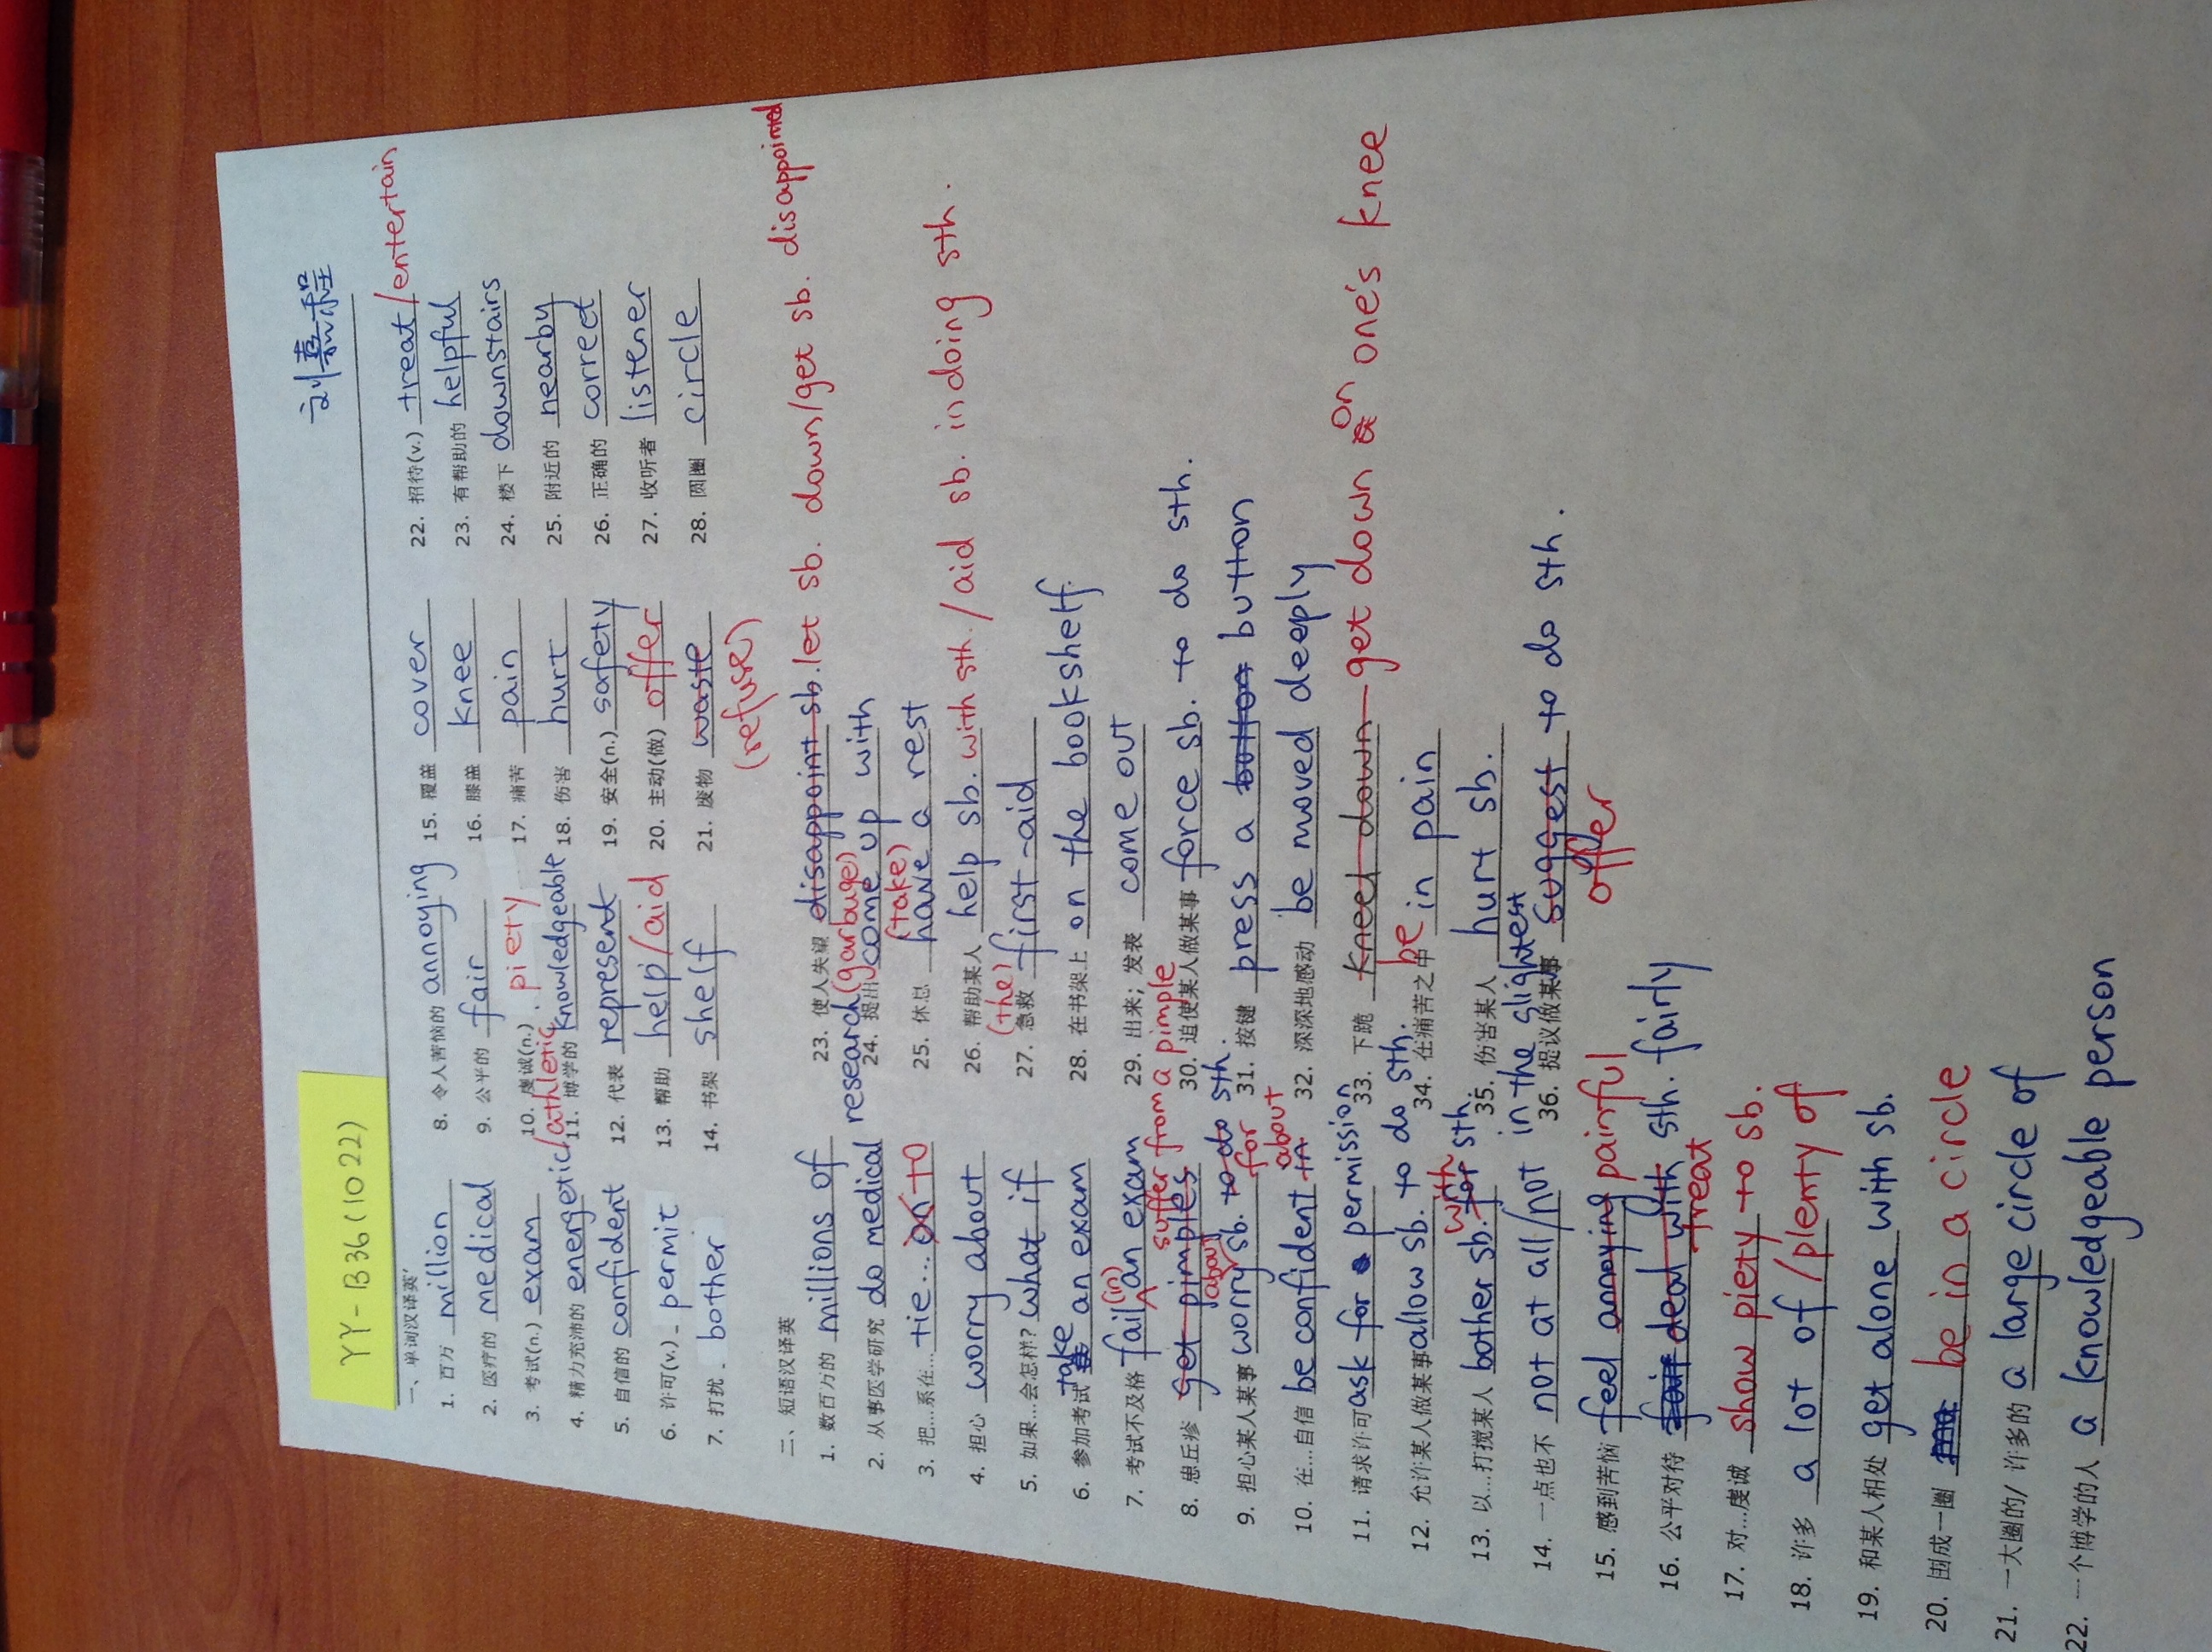 刘嘉程
YY-B36(1022)
一、单词汉译英
1. 百万 million
2. 医疗的 medical
3. 考试(n.) exam
4. 精力充沛的 energetic/athletic
5. 自信的 confident
6. 许可(v.) permit
7. 打扰 bother
8. 令人苦恼的 annoying
9. 公平的 fair
10. 虔诚(n.) piety
11. 博学的 knowledgeable
12. 代表 represent
13. 帮助 help/aid
14. 书架 shelf
15. 覆盖 cover
16. 膝盖 knee
17. 痛苦 pain
18. 伤害 hurt
19. 安全(n.) safety
20. 主动(做) offer
21. 废物 waste
(refuse)
22. 招待(v.) treat/entertain
23. 有帮助的 helpful
24. 楼下 downstairs
25. 附近的 nearby
26. 正确的 correct
27. 收听者 listener
28. 圆圈 circle
二、短语汉译英
1. 数百万的 millions of
2. 从事医学研究 do medical research
3. 把...系在... tie... on to
4. 担心 worry about
5. 如果...会怎样? what if
6. 参加考试 take an exam
7. 考试不及格 fail (in) an exam
8. 患丘疹 get pimples suffer from a pimple
9. 担心某人某事 worry about sb. to do sth. for
10. 在...自信 be confident in about
11. 请求许可 ask for a permission
12. 允许某人做某事 allow sb. to do sth.
13. 以...打搅某人 bother sb. for with sth.
14. 一点也不 not at all/not in the slightest
15. 感到苦恼 feel annoying painful
16. 公平对待 fair deal with sth. fairly
treat
17. 对...虔诚 show piety to sb.
18. 许多 a lot of/plenty of
19. 和某人相处 get alone with sb.
20. 围成一圈 ma be in a circle
21. 一大圈的/ 许多的 a large circle of
22. 一个博学的人 a knowledgeable person
23. 使人失望 disappoint sb. let sb. down/get sb. disappointed
(garbuge)
24. 提出 come up with
(take)
25. 休息 have a rest
26. 帮助某人 help sb. with sth./aid sb. in doing sth.
(the)
27. 急救 first-aid
28. 在书架上 on the bookshelf
29. 出来；发表 come out
30. 迫使某人做某事 force sb. to do sth.
31. 按键 press a botton button
32. 深深地感动 be moved deeply
33. 下跪 kneel down get down on one's knee
34. 在痛苦之中 be in pain
35. 伤害某人 hurt sb.
36. 提议做某事 suggest to do sth.
offer